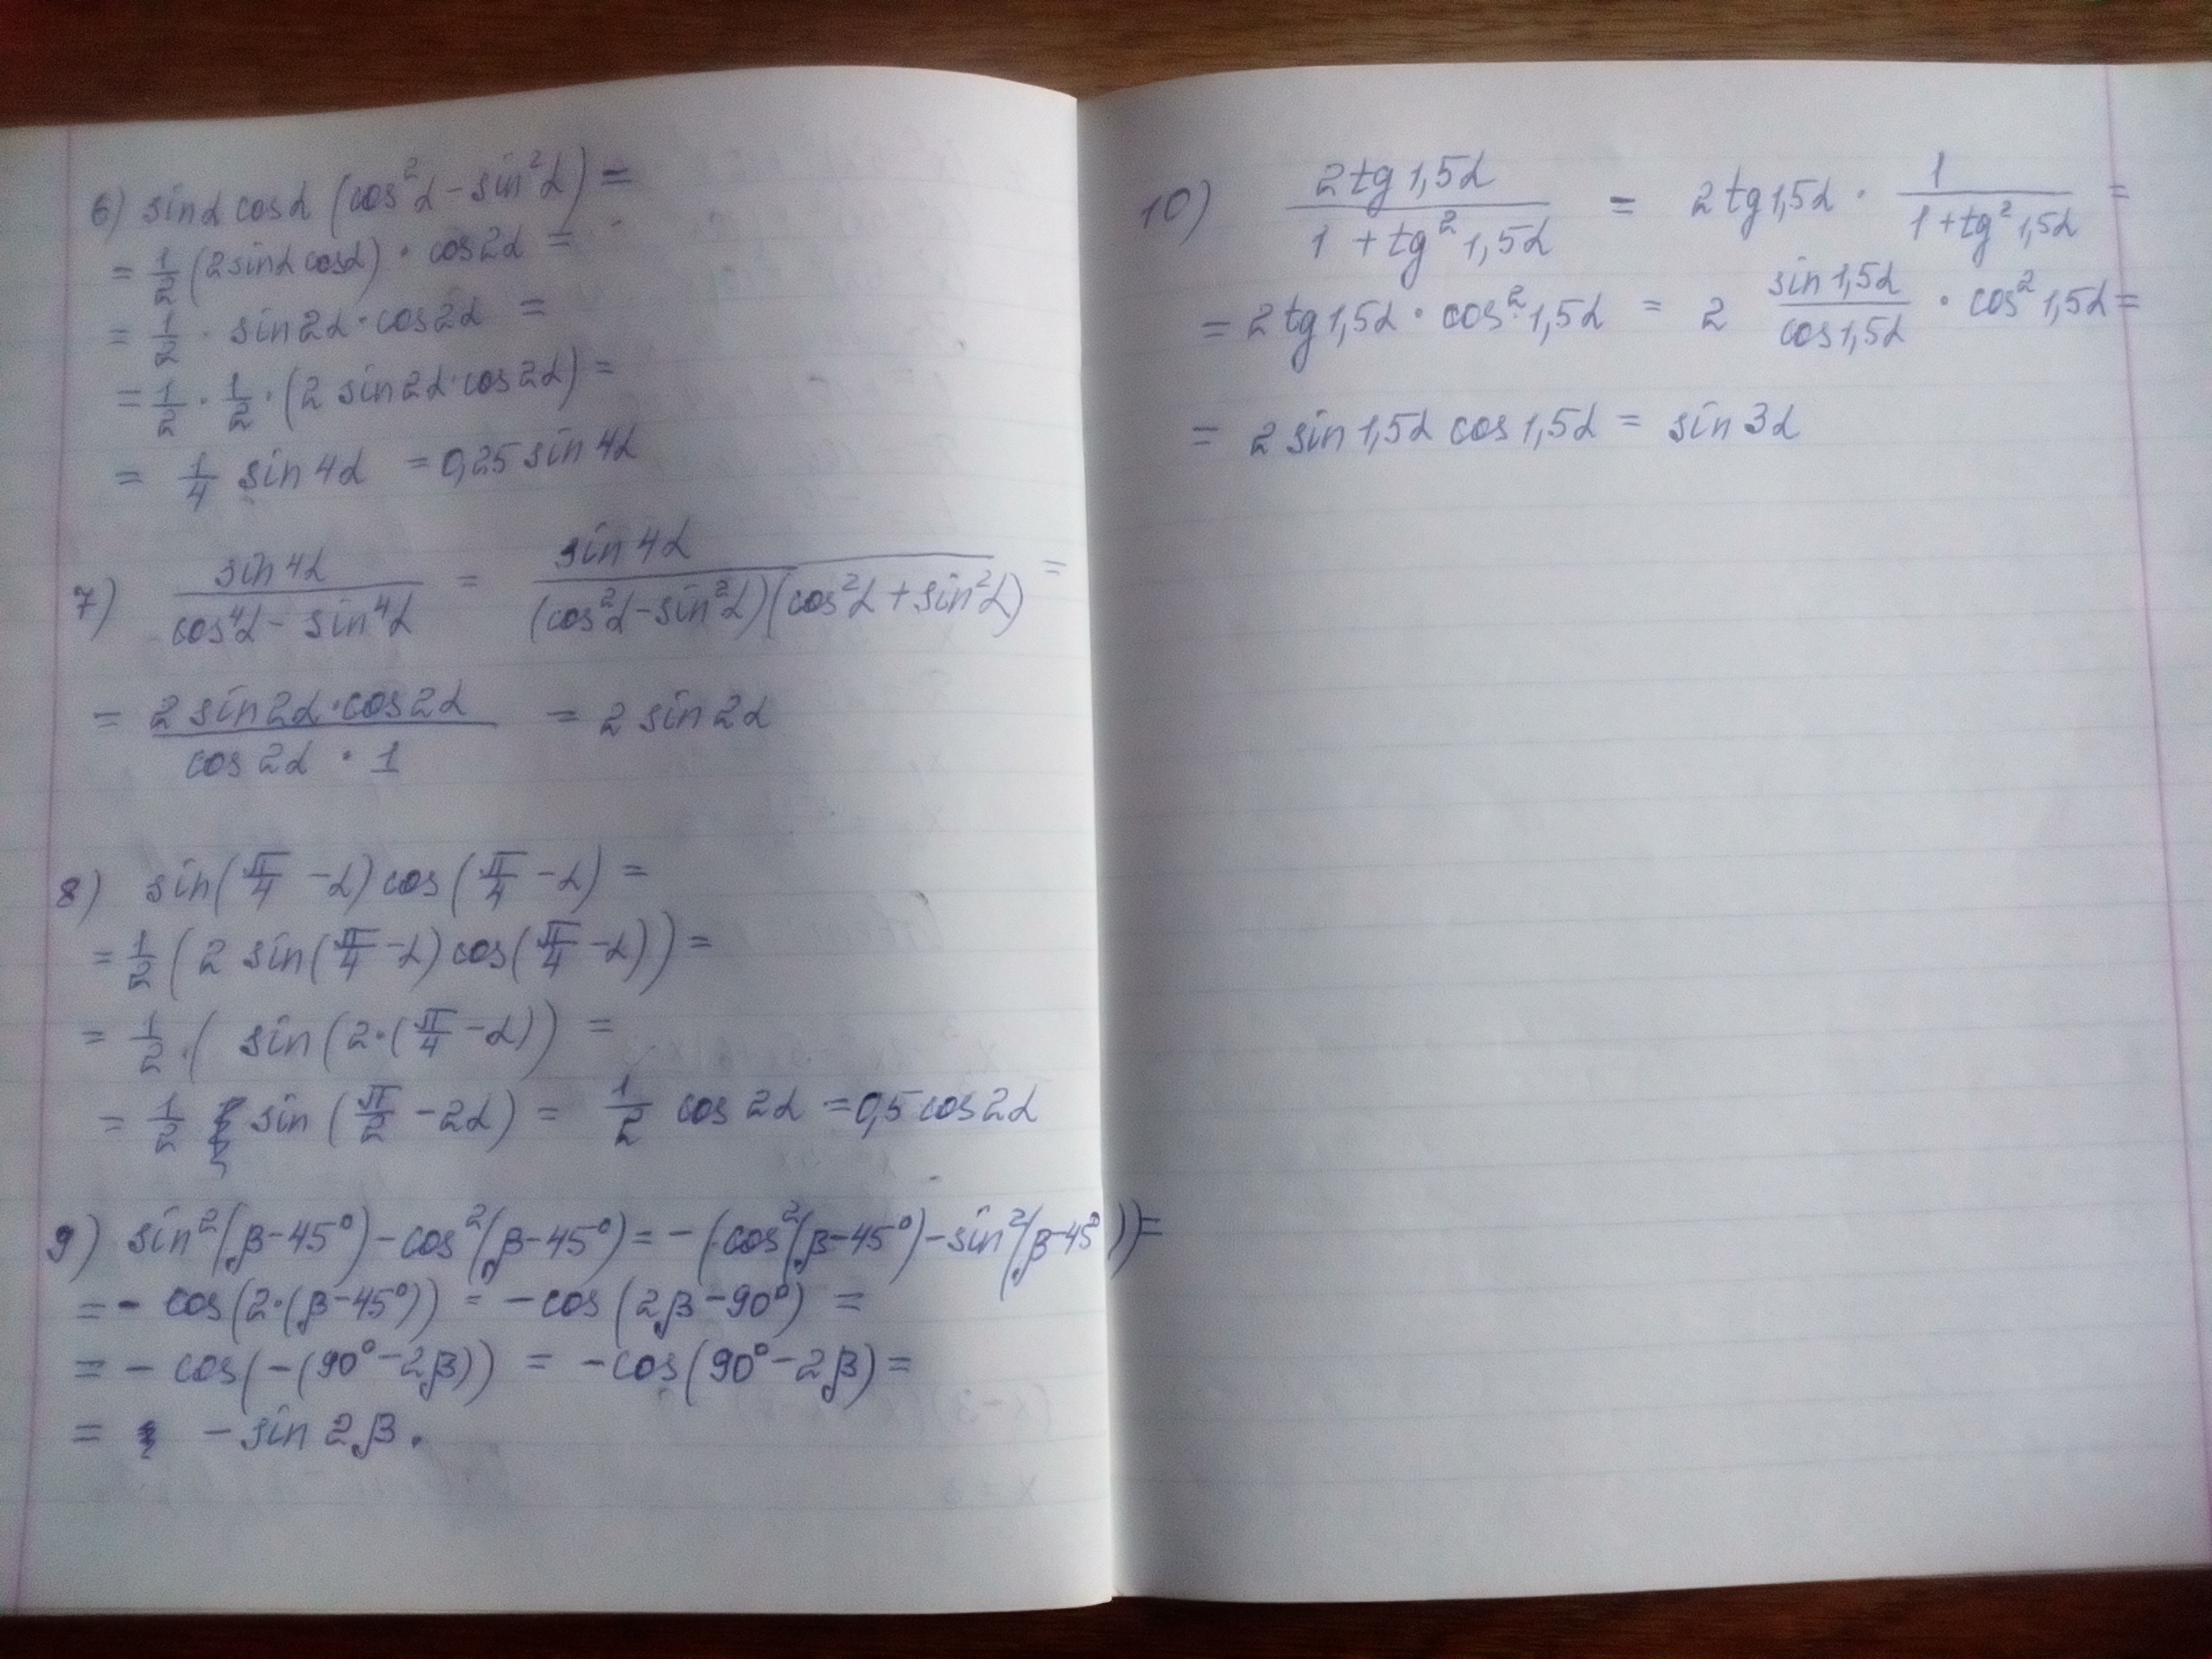 6) sinα cosα (cos²α - sin²α) =
= 1/2 (2sinα cosα) · cos2α =
= 1/2 · sin2α · cos2α =
= 1/2 · 1/2 · (2 sin2α · cos2α) =
= 1/4 sin4α = 0,25 sin4α
7) sin4α / (cos⁴α - sin⁴α) = sin4α / ((cos²α - sin²α)(cos²α + sin²α)) =
= (2 sin2α · cos2α) / (cos2α · 1) = 2 sin2α
8) sin(π/4 - α) cos(π/4 - α) =
= 1/2 (2 sin(π/4 - α) cos(π/4 - α)) =
= 1/2 · ( sin(2·(π/4 - α)) =
= 1/2 sin(π/2 - 2α) = 1/2 cos2α = 0,5 cos2α
9) sin²(β - 45°) - cos²(β - 45°) = -(cos²(β - 45°) - sin²(β - 45°)) =
= - cos(2·(β - 45°)) = - cos(2β - 90°) =
= - cos(-(90° - 2β)) = - cos(90° - 2β) =
= - sin2β.
10) 2tg1,5α / (1 + tg²1,5α) = 2tg1,5α · 1 / (1 + tg²1,5α) =
= 2tg1,5α · cos²1,5α = 2 sin1,5α / cos1,5α · cos²1,5α =
= 2 sin1,5α cos1,5α = sin3α